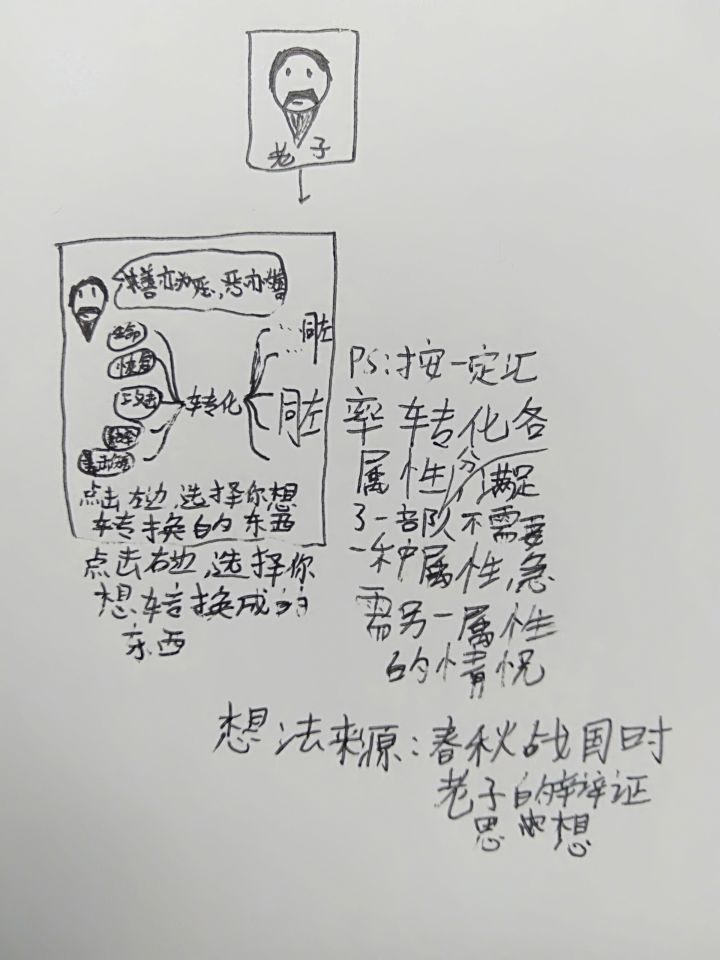 老子
善亦为恶,恶亦
生命
同左
转化
同左
点击左边,选择你想
转换的东西
点击右边,选择你
想转换成的
东西
PS:按一定汇
率转化各
属性分,满足
了一部队不需要
一种属性,急
需另一属性
的情况
想法来源:春秋战国时
老子的辩证
思想